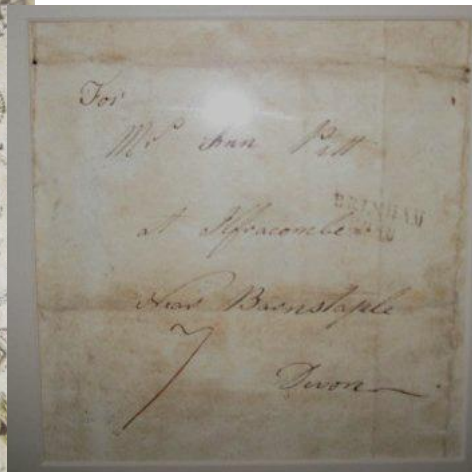 For
Mrs Ann Pitt
at Ilfracombe
Near Barnstaple
7
Devon